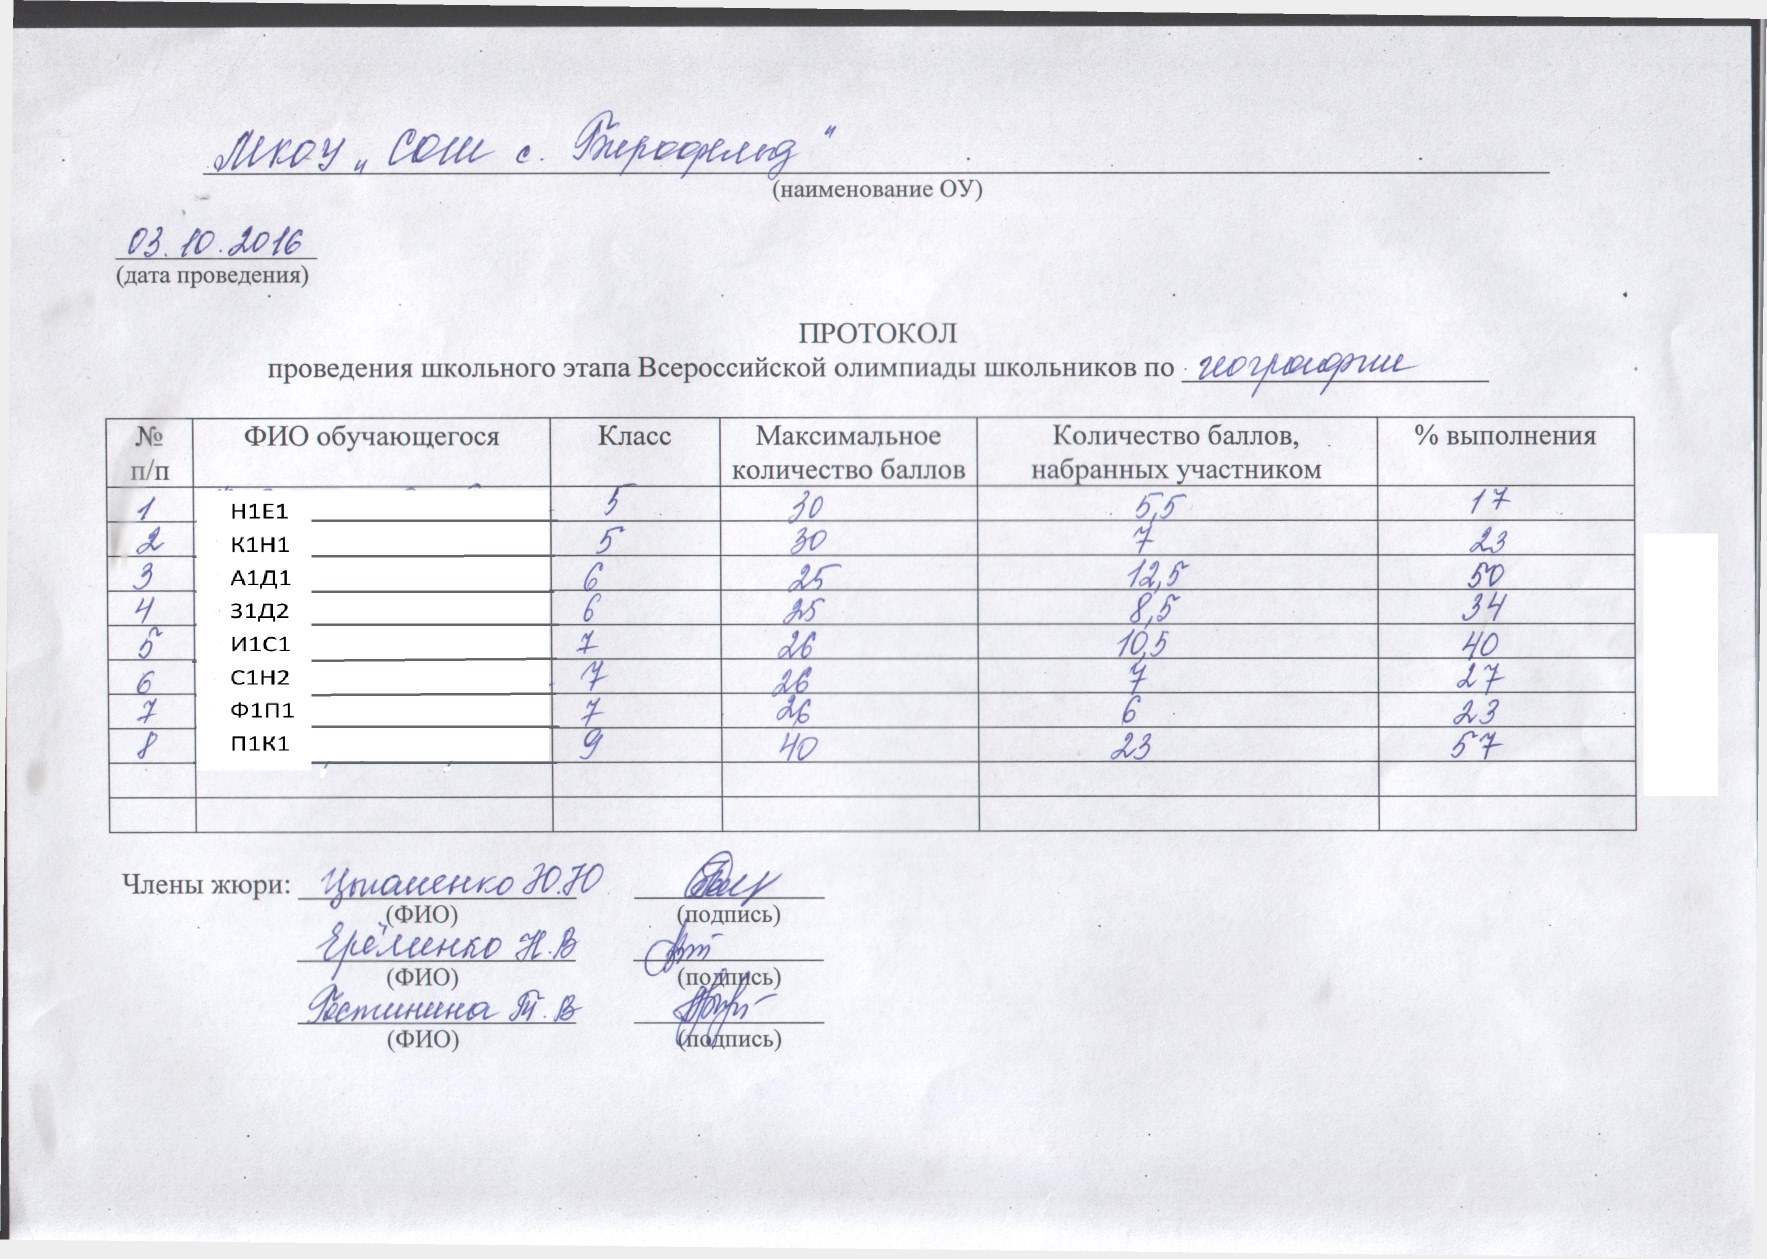 МКОУ „СОШ с. Бирофельд"
(наименование ОУ)
03.10.2016
(дата проведения)
ПРОТОКОЛ
проведения школьного этапа Всероссийской олимпиады школьников по географии
№ п/п ФИО обучающегося Класс Максимальное количество баллов Количество баллов, набранных участником % выполнения
1 Н1Е1 5 30 5,5 17
2 К1Н1 5 30 7 23
3 А1Д1 6 25 12,5 50
4 З1Д2 6 25 8,5 34
5 И1С1 7 26 10,5 40
6 С1Н2 7 26 7 27
7 Ф1П1 7 26 6 23
8 П1К1 9 40 23 57
Члены жюри: Ю.Ю
(ФИО) (подпись)
Ерёминко Н.В
(ФИО) (подпись)
Т.В
(ФИО) (подпись)